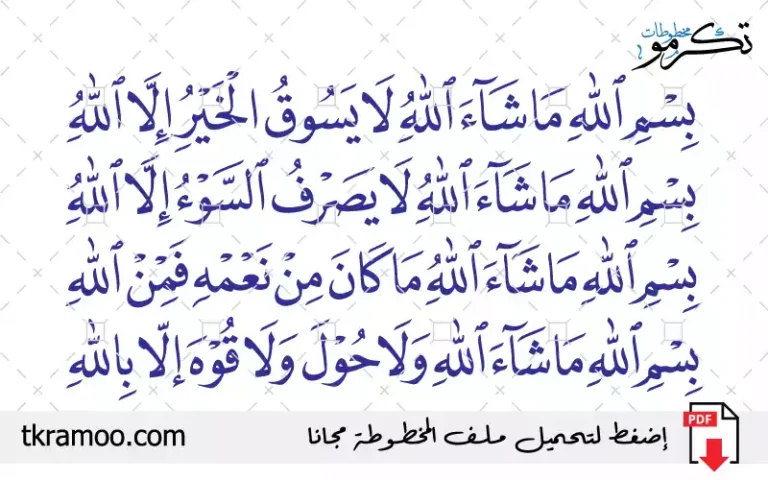 مخطوطات
تكرمو
بِسْمِ ٱللهِ مَا شَآءَ ٱللهُ لَا يَسُوقُ الْخَيْرُ إِلَّا ٱللهُ
بِسْمِ ٱللهِ مَا شَآءَ ٱللهُ لَا يَصَرْفُ ٱلسَّوْءُ إِلَّا ٱللهُ
بِسْمِ ٱللهِ مَا شَآءَ ٱللهُ مَا كَانَ مِنْ نَعْمْهِ فَمِنْ ٱللهِ
بِسْمِ ٱللهِ مَا شَآءَ ٱللهِ وَلَا حُوْلَ وَلَا قُوْهَ إلّا بِاللهِ
PDF
إضغط لتحميل ملف المخطوطة مجانا
tkramoo.com